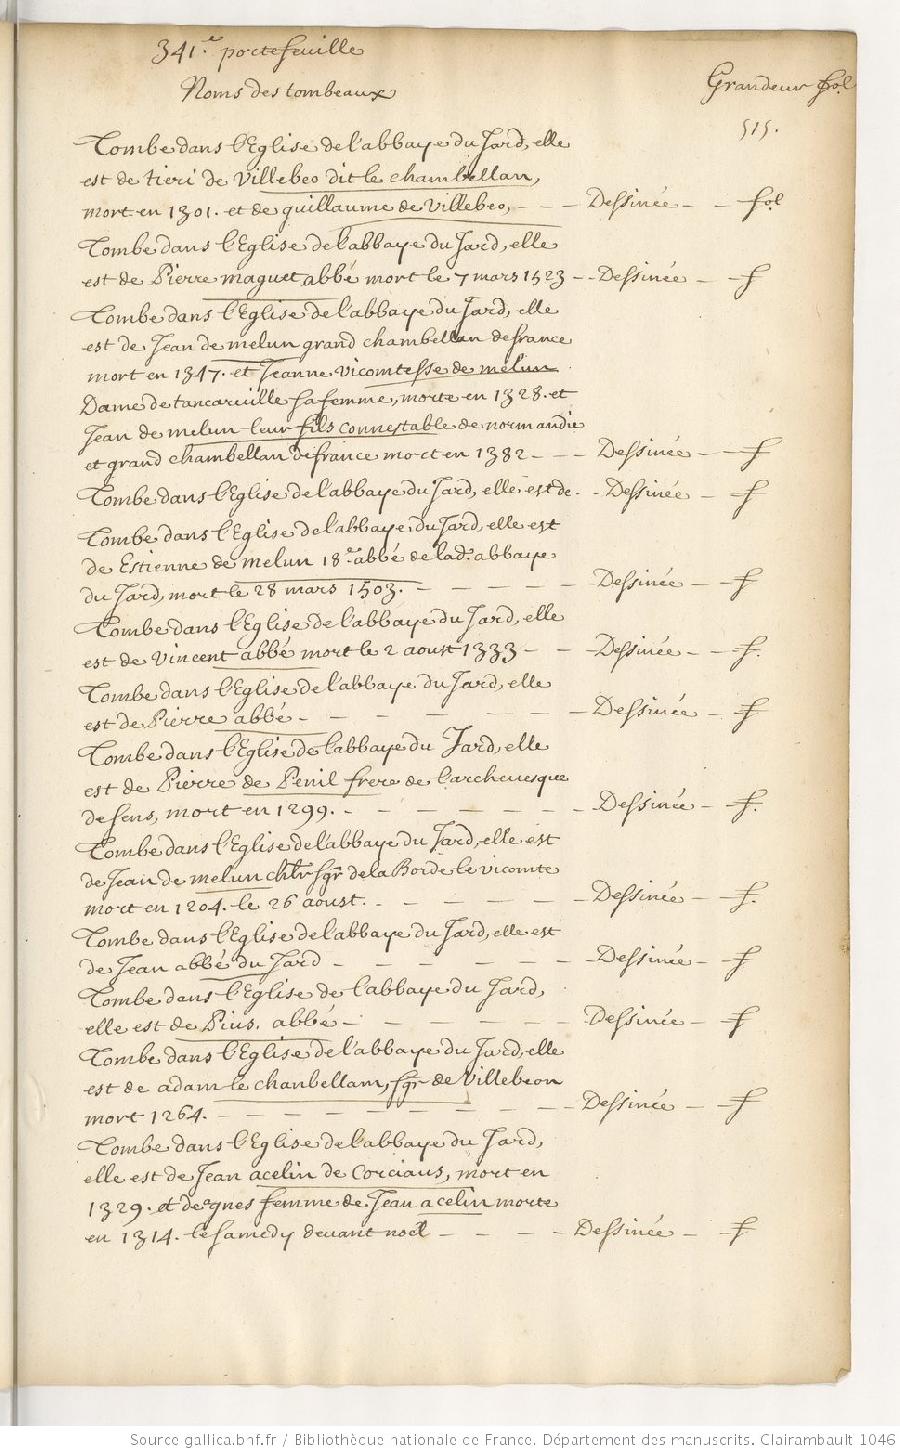 341.e portefeuille
Noms des tombeaux
Grandeur fol
515.
Tombe dans l'Eglise de l'abbaye du Jard, elle
est de tieri de Villebeo dit le chambellan,
mort en 1301. et de guillaume de Villebeo, - - - Dessinée - - fol
Tombe dans l'Eglise de l'abbaye du Jard, elle
est de Pierre maguet abbé mort le 7 mars 1523 - - Dessinée - f
Tombe dans l'Eglise de l'abbaye du Jard, elle
est de Jean de melun grand chambellan de france
mort en 1347. et Jeanne vicomtesse de melun
Dame de tancareuille sa femme, morte en 1328. et
Jean de melun leur fils connestable de normandie
et grand chambellan de france mort en 1382 - - - Dessinée - - f
Tombe dans l'Eglise de l'abbaye du Jard, elle est de - - Dessinée - f
Tombe dans l'Eglise de l'abbaye du Jard, elle est
de Estienne de melun 18.e abbé de lad. abbaye
du Jard, mort le 28 mars 1503. - - - - - Dessinée - - f
Tombe dans l'Eglise de l'abbaye du Jard, elle
est de Vincent abbé mort le 2 aoust 1333 - - - Dessinée - - f.
Tombe dans l'Eglise de l'abbaye du Jard, elle
est de Pierre abbé - - - - - - - Dessinée - f
Tombe dans l'Eglise de l'abbaye du Jard, elle
est de Pierre de Penil frere de l'archeuesque
de sens, mort en 1299. - - - - - - - Dessinée - f.
Tombe dans l'Eglise de l'abbaye du Jard, elle est
de Jean de melun chlr sgr de la Borde le vicomte
mort en 1204. le 26 aoust. - - - - - - Dessinée - f.
Tombe dans l'Eglise de l'abbaye du Jard, elle est
de Jean abbé du Jard - - - - - - - Dessinée - f
Tombe dans l'Eglise de l'abbaye du Jard,
elle est de Pius. abbé - - - - - - - Dessinée - f
Tombe dans l'Eglise de l'abbaye du Jard, elle
est de adam le chanbellam, sgr de Villebeon
mort 1264. - - - - - - - - - Dessinée - f
Tombe dans l'Eglise de l'abbaye du Jard,
elle est de Jean acelin de Corciaus, mort en
1329. et de gnes femme de Jean acelin morte
en 1314. le samedy deuant noël - - - - Dessinée - f
Source gallica.bnf.fr / Bibliothèque nationale de France. Département des manuscrits. Clairambault 1046